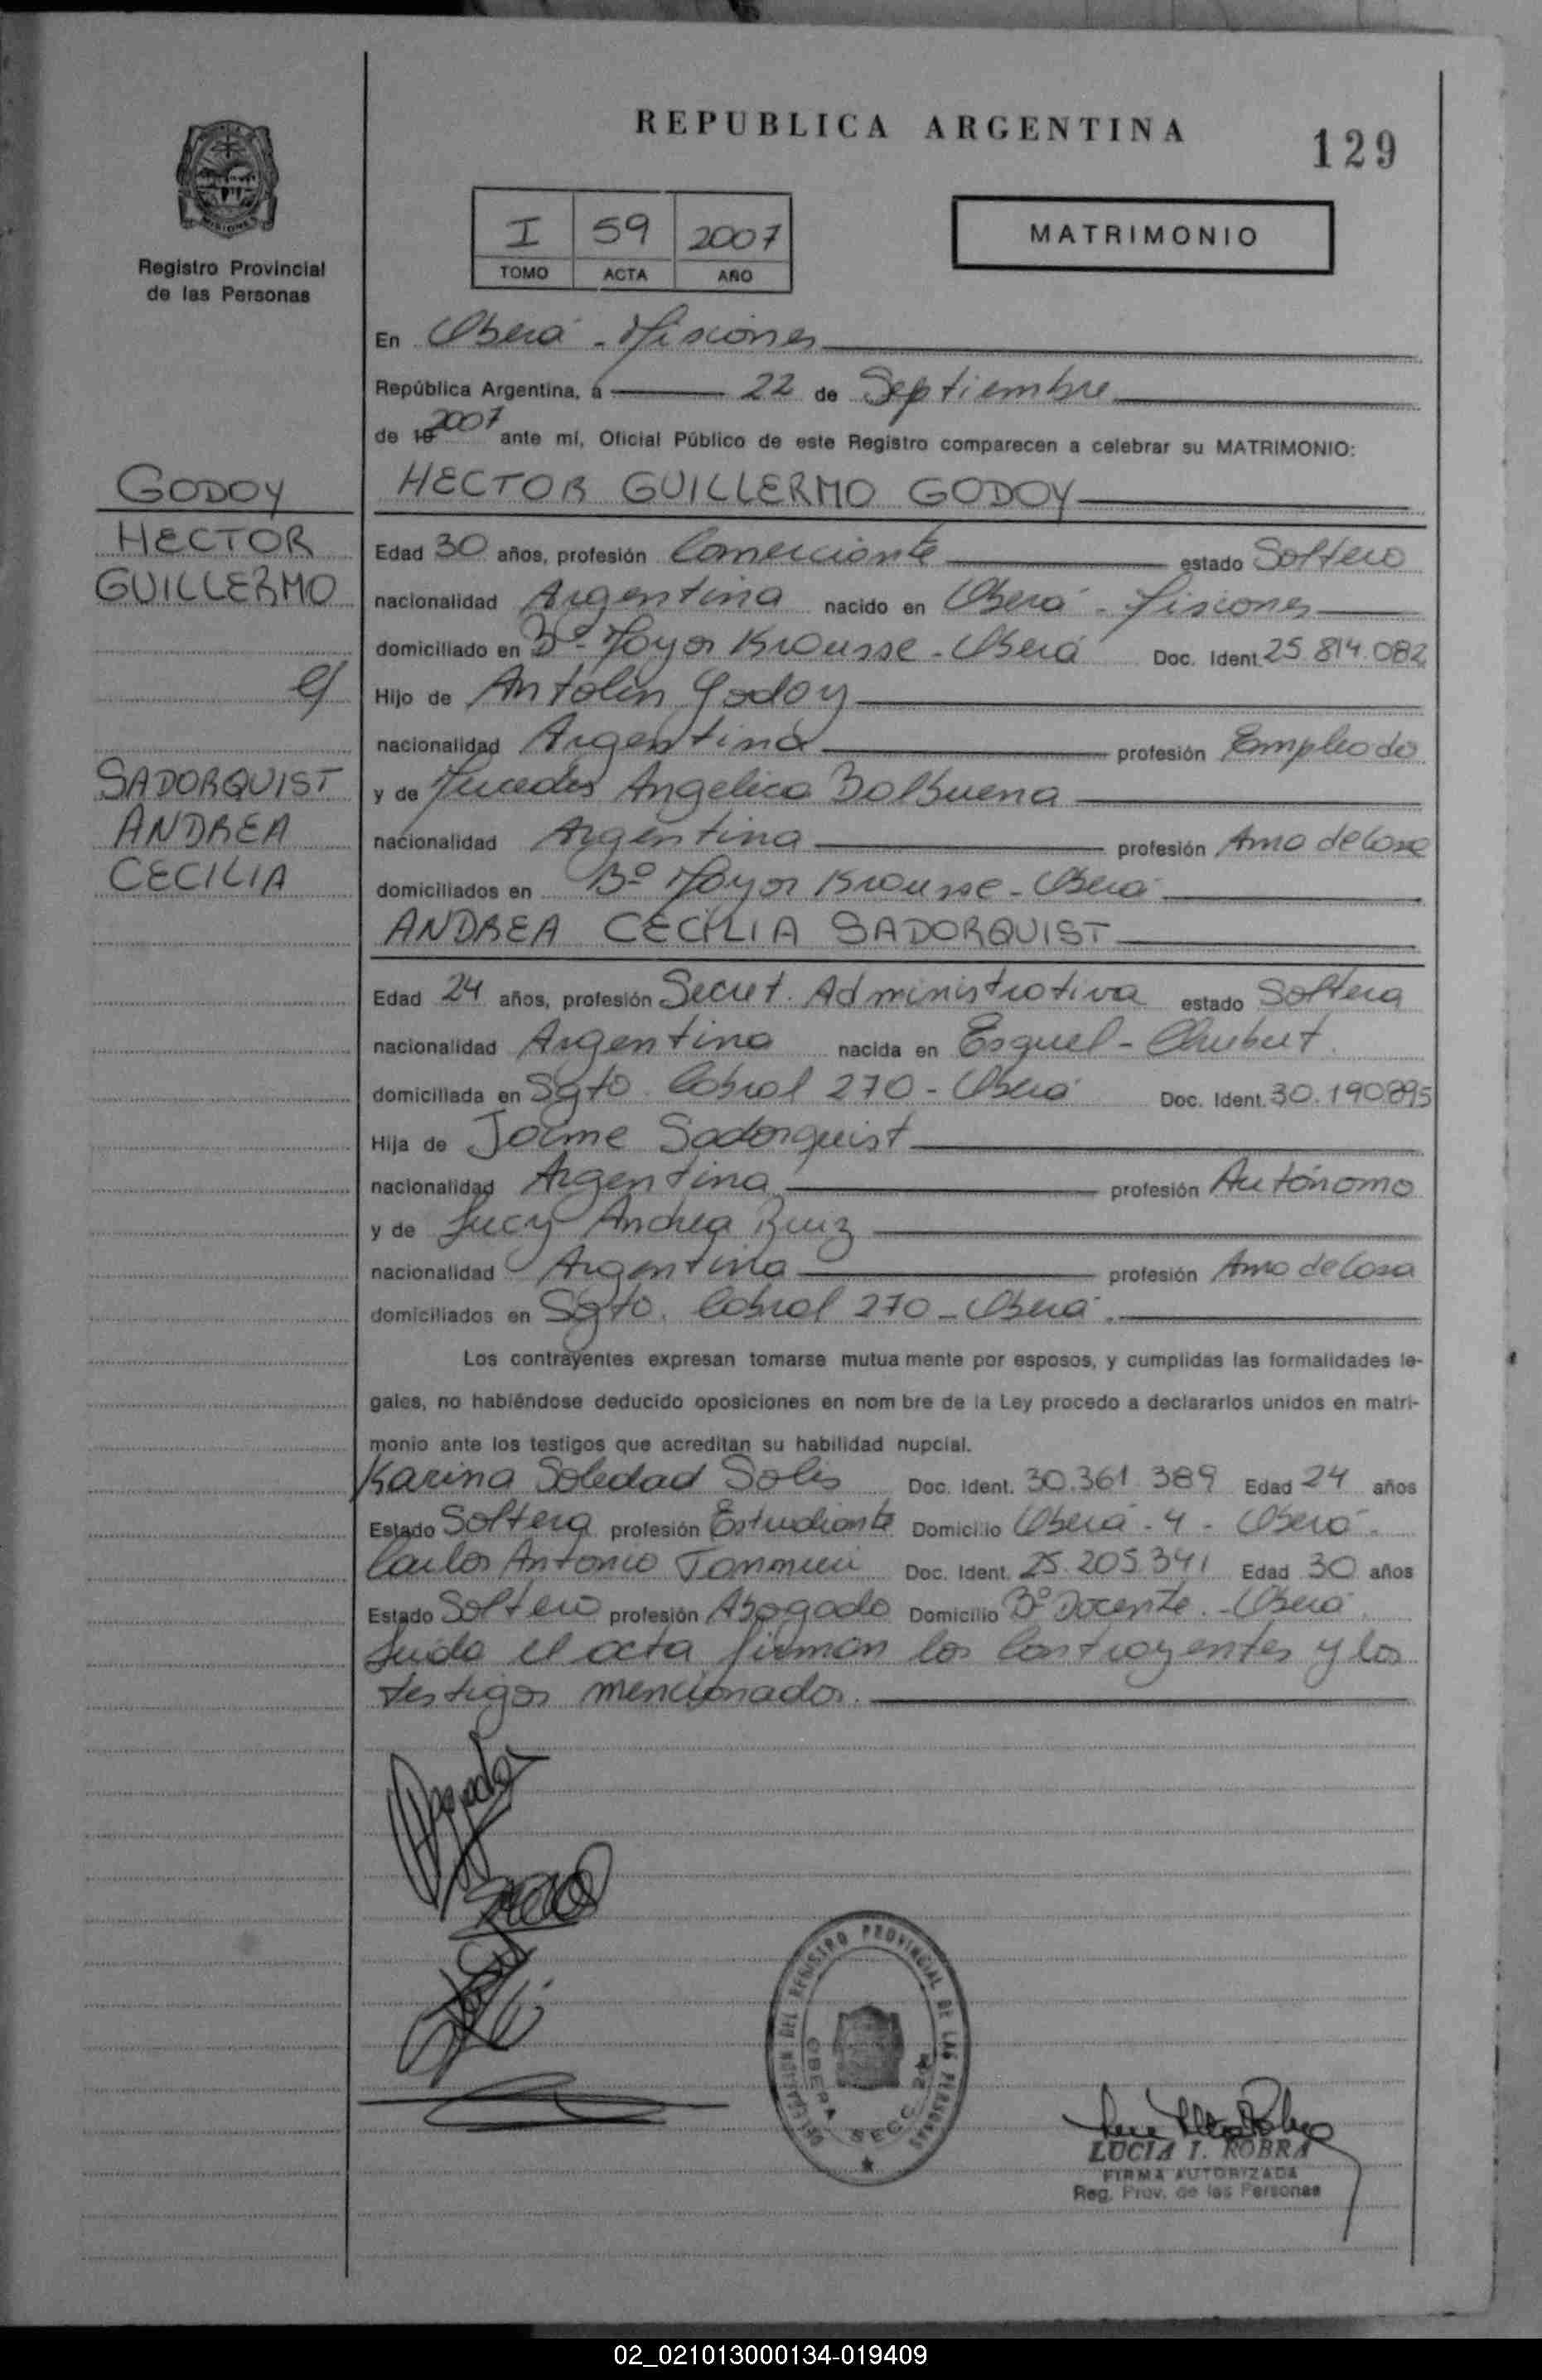 REPUBLICA ARGENTINA
129
I 59 2007
TOMO ACTA AÑO
MATRIMONIO
Registro Provincial
de las Personas
En Oberá - Misiones
República Argentina, a 22 de Septiembre
de 19 2007 ante mí, Oficial Público de este Registro comparecen a celebrar su MATRIMONIO:
GODOY
HECTOR
GUILLERMO
c/
SADORQUIST
ANDREA
CECILIA
HECTOR GUILLERMO GODOY
Edad 30 años, profesión Comerciante estado Soltero
nacionalidad Argentina nacido en Oberá - Misiones
domiciliado en Bº Mayor Krausse - Oberá Doc. Ident. 25.814.082
Hijo de Antolín Godoy
nacionalidad Argentina profesión Empleado
y de Mercedes Angelica Balbuena
nacionalidad Argentina profesión Ama de Casa
domiciliados en Bº Mayor Krausse - Oberá
ANDREA CECILIA SADORQUIST
Edad 24 años, profesión Secret. Administrativa estado Soltera
nacionalidad Argentina nacida en Esquel - Chubut.
domiciliada en Sgto. Cabral 270 - Oberá Doc. Ident. 30.190.895
Hija de Jaime Sadorquist
nacionalidad Argentina profesión Autónomo
y de Lucy Andrea Ruiz
nacionalidad Argentina profesión Ama de Casa
domiciliados en Sgto. Cabral 270 - Oberá.
Los contrayentes expresan tomarse mutua mente por esposos, y cumplidas las formalidades le-
gales, no habiéndose deducido oposiciones en nom bre de la Ley procedo a declararlos unidos en matri-
monio ante los testigos que acreditan su habilidad nupcial.
Karina Soledad Solis Doc. Ident. 30.361.389 Edad 24 años
Estado Soltera profesión Estudiante Domicilio Oberá - 4 - Oberá.
Carlos Antonio Doc. Ident. 25.205.341 Edad 30 años
Estado Soltero profesión Abogado Domicilio Bº Docente. - Oberá.
Leída el acta firman los Contrayentes y los
testigos mencionados.
DELEGACION DEL REGISTRO PROVINCIAL DE LAS PERSONAS
OBERA SECC.
LUCIA I. ROBRA
FIRMA AUTORIZADA
Reg. Prov. de las Personas
02_021013000134-019409